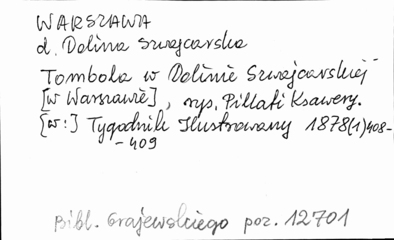 WARSZAWA
d. Dolina Szwajcarska
Tombola w Dolinie Szwajcarskiej
[w Warszawie], rys. Pillati Ksawery.
[w:] Tygodnik Ilustrowany 1878(1)408-
-409
Bibl. Grajewskiego poz. 12701